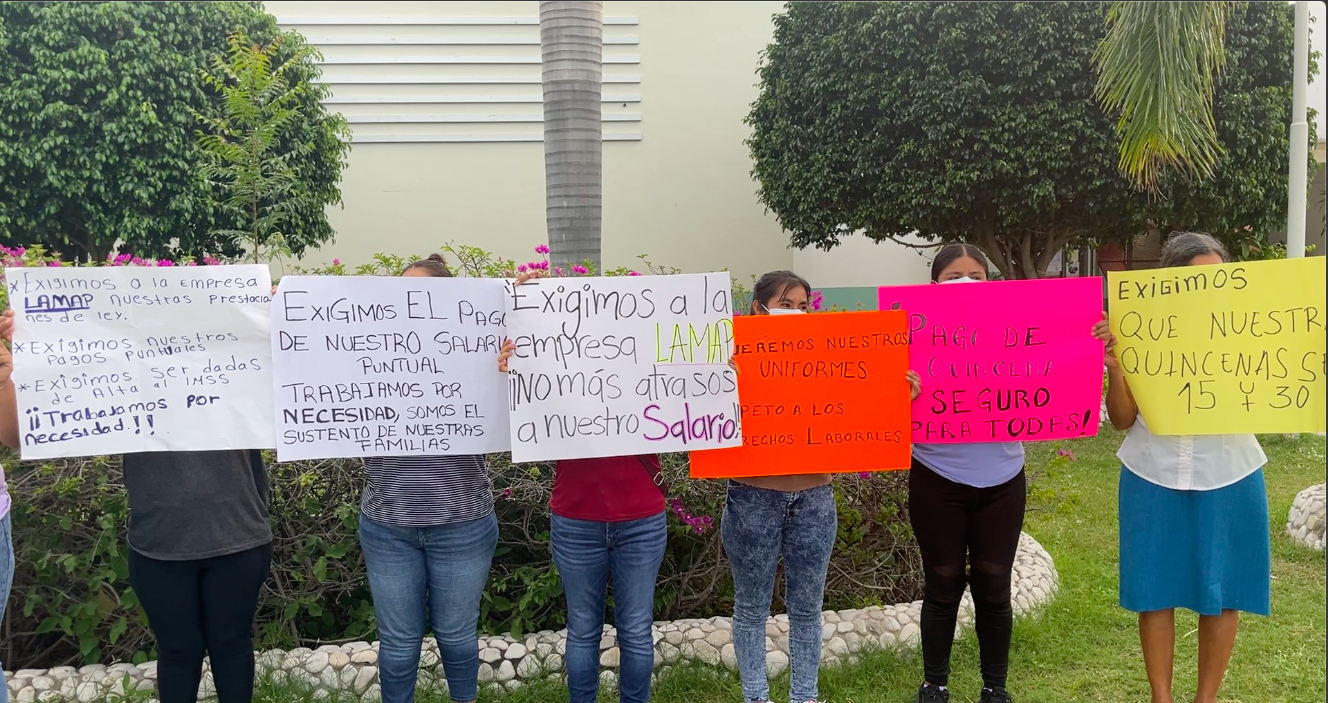 * Exigimos a la empresa
LAMAP nuestras prestacio
nes de ley.
* Exigimos nuestros
Pagos Puntuales
* Exigimos ser dadas
de Alta al IMSS
¡¡Trabajamos por
necesidad.!!
EXIGIMOS EL PAGO
DE NUESTRO SALARIO
PUNTUAL
TRABAJAMOS POR
NECESIDAD, SOMOS EL
SUSTENTO DE NUESTRAS
FAMILIAS
¡Exigimos a la
empresa LAMAP
¡¡NO más atrasos
a nuestro Salario!!
UEREMOS NUESTROS
UNIFORMES
PETO A LOS
RECHOS LABORALES
¡PAGO DE
QUINCENA
SEGURO
PARA TODAS!
EXIGIMOS
QUE NUESTRA
QUINCENAS SE
15 Y 30